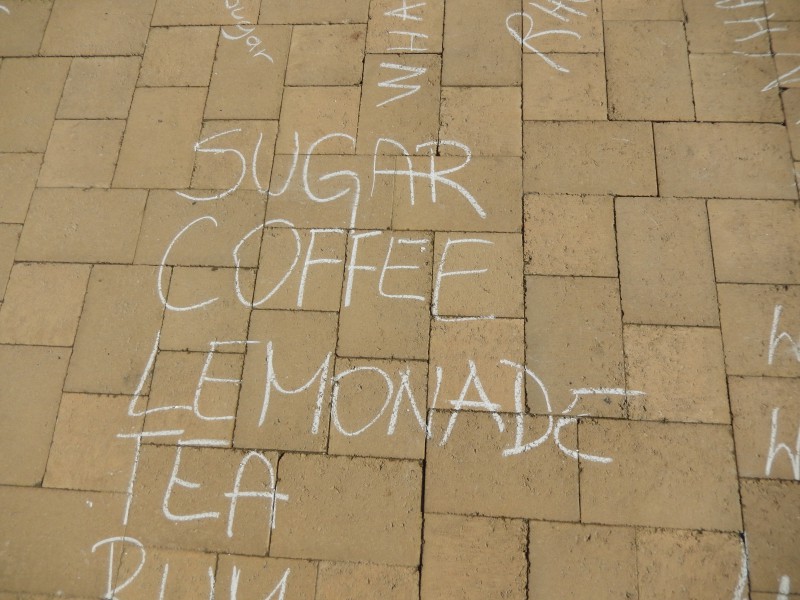 sugar
WHA
RH
SUGAR
COFFEE
LEMONADE
TEA
RUM